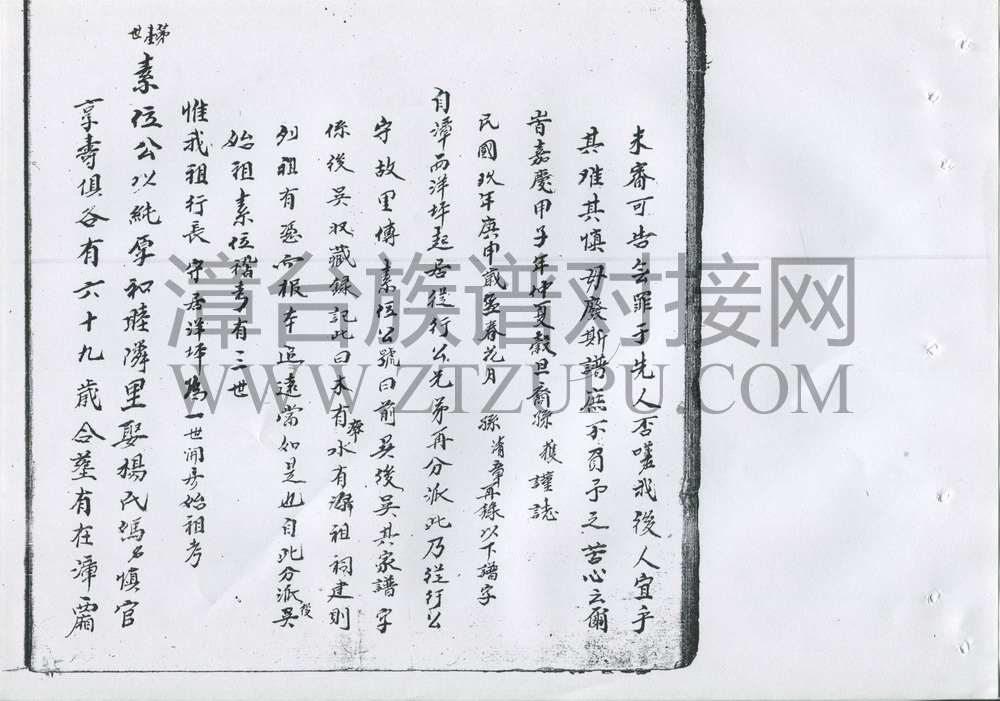 未審可告無罪于先人否嗟我後人宜乎
其难其慎毋廢斯譜庶不負予之苦心云爾
旹嘉慶甲子年仲夏穀旦裔孫獲謹誌
民國玖年庚申歲孟春花月 孫清章再錄以下譜字
自漳而洋坪起居從行公兄弟再分派此乃從行公
守故里傳素位公號曰前吴後吴其家譜字
係後吴収藏錄記此曰木有本水有源祖祠建則
列祖有憑而報本追遠當如是也自此分派後吴
始祖素位稽考有三世
惟我祖行長守居洋坪為一世開房始祖考
第壹世
素位公以純厚和睦隣里娶楊氏媽名慎官
享壽俱各有六十九歲合塟有在漳霜
漳台族谱对接网
WWW.ZTZUPU.COM